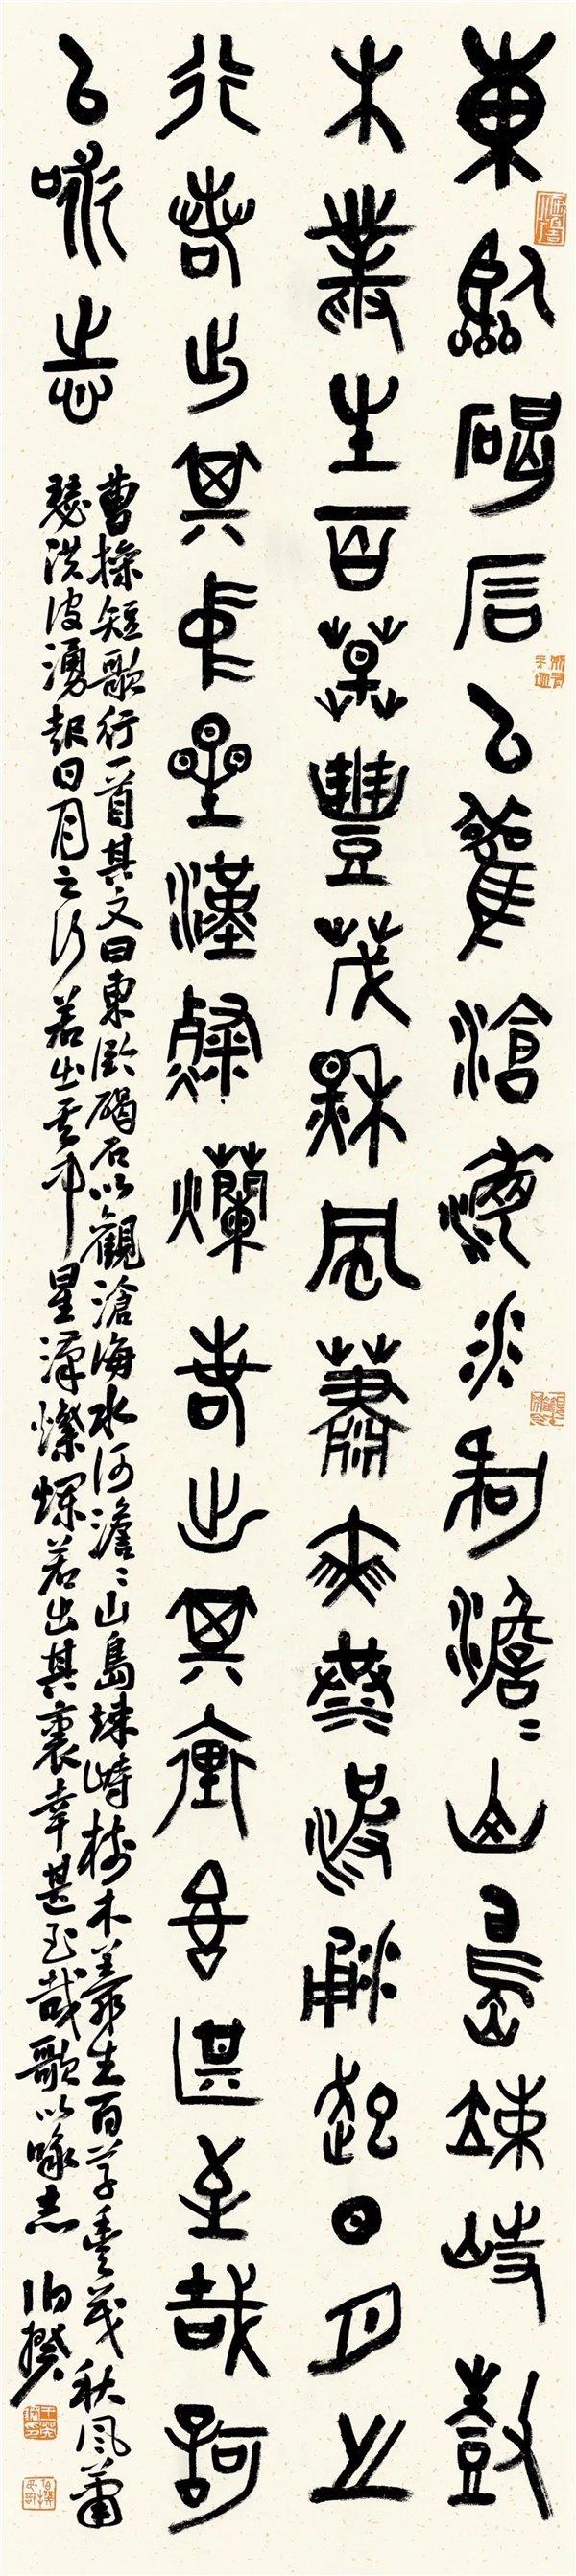 東臨碣石以觀滄海水何澹〻山島竦峙樹
木叢生百草豐茂秋風蕭瑟洪波涌起日月之
行若出其中星漢粲爛若出其裏幸甚至哉歌
以詠志
曹操短歌行一首其文曰東臨碣石以觀滄海水何澹〻山島竦峙樹木叢生百草豐茂秋風蕭
瑟洪波湧起日月之行若出其中星漢燦爛若出其裏幸甚至哉歌以詠志 伯揆